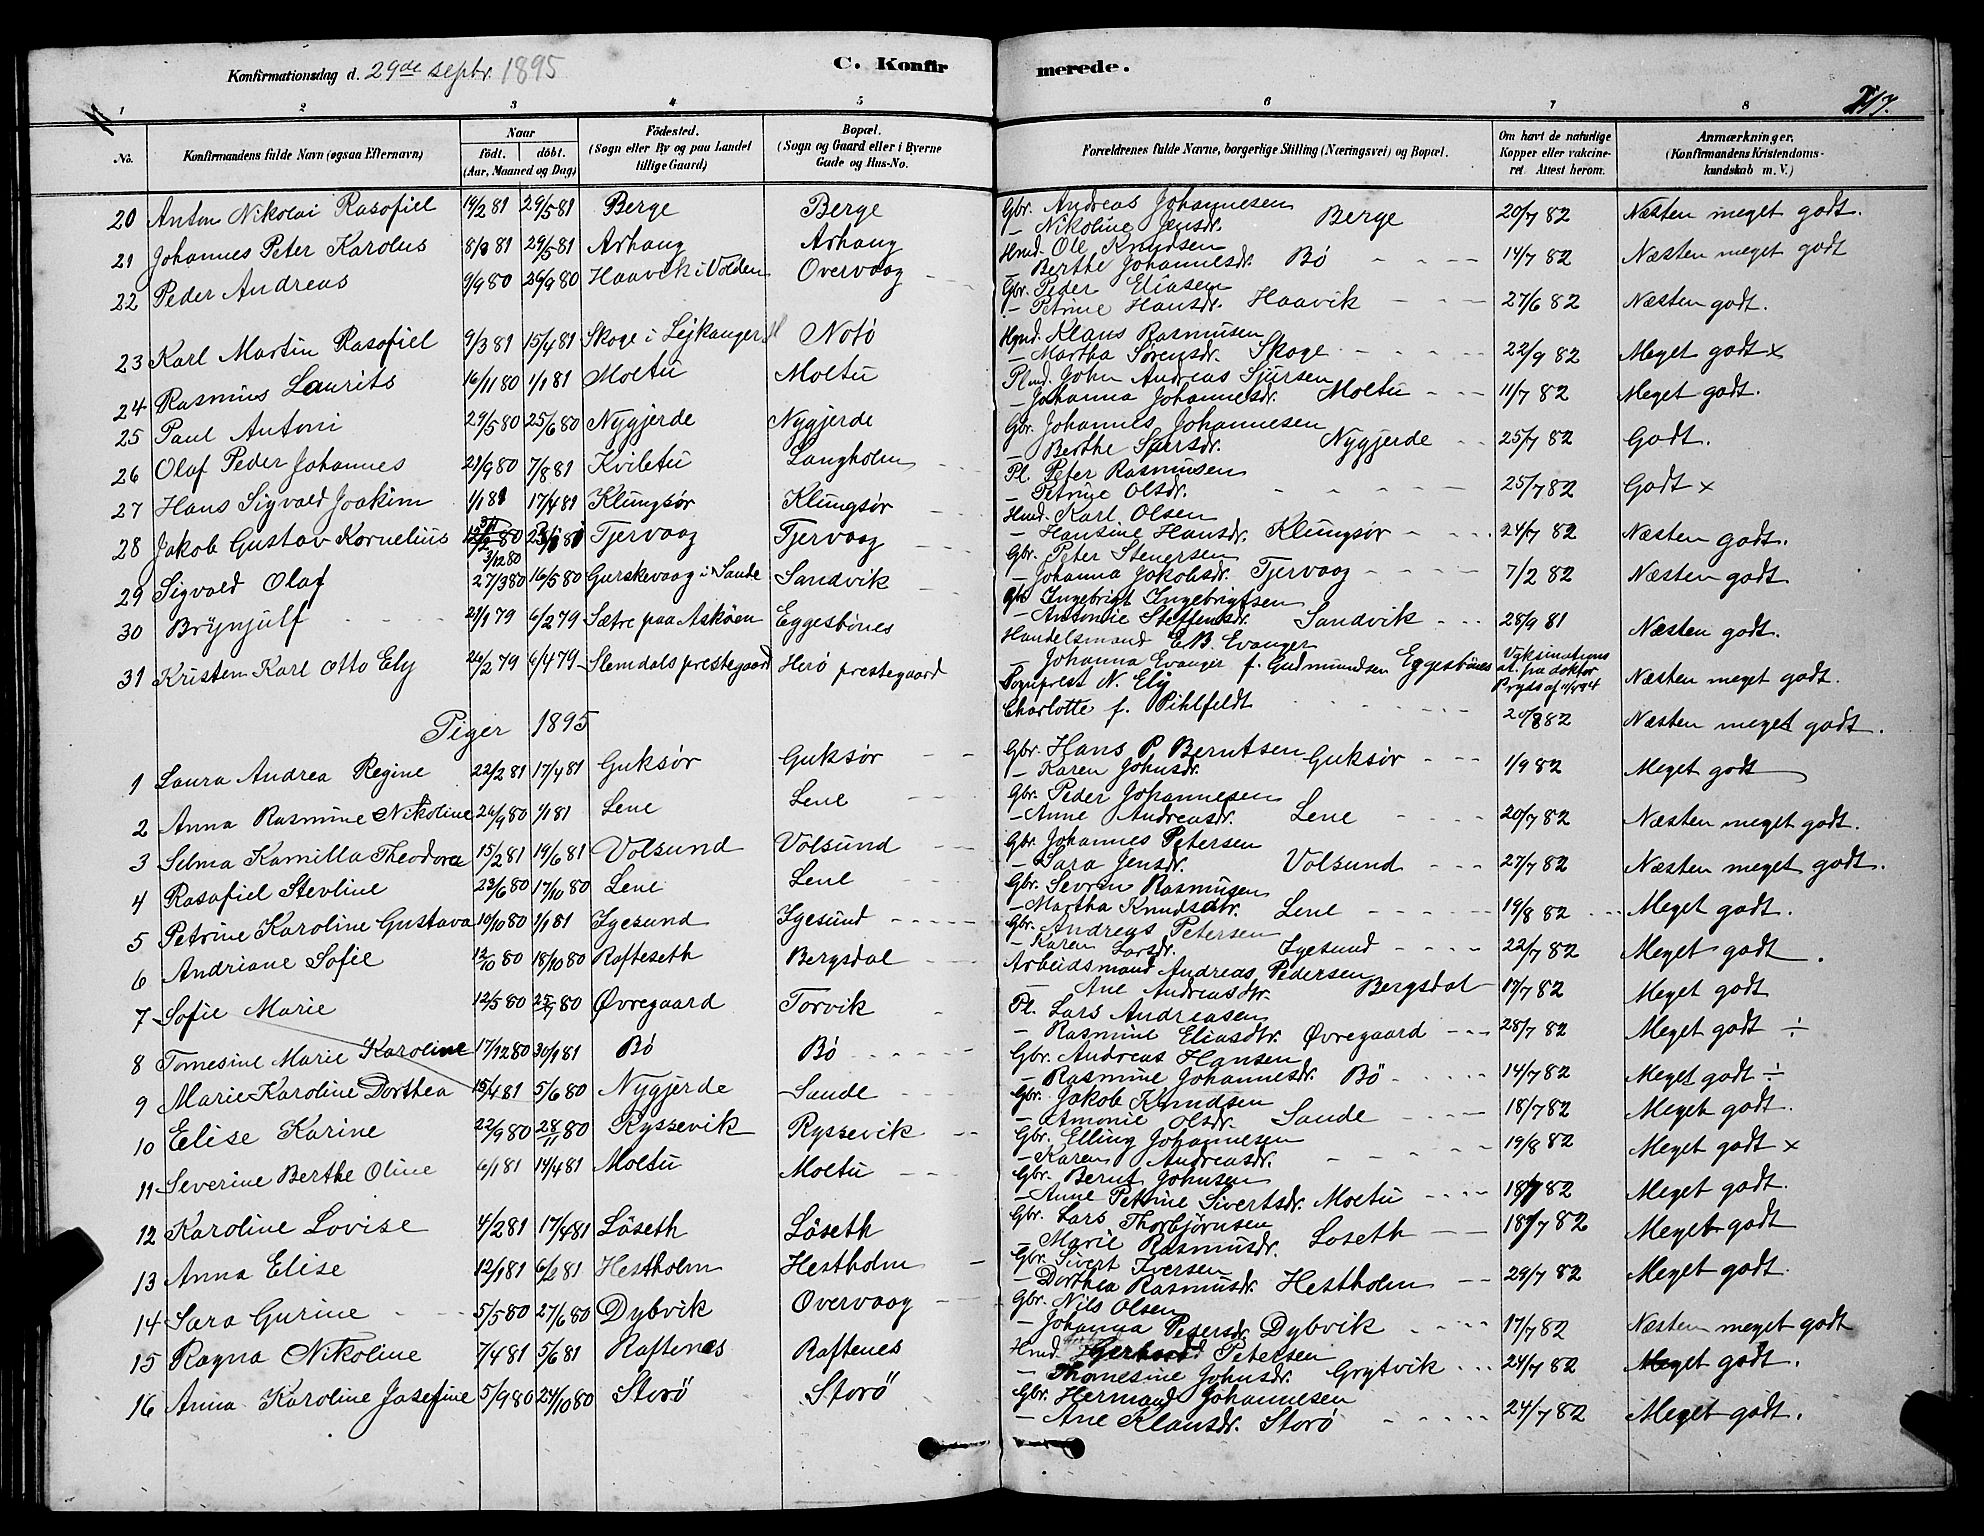 Konfirmationsdag d. 29de septbr. 1895
C. Konfirmerede.
1 2 3 4 5 6 7 8
No. Konfirmandens fulde Navn (ogsaa Efternavn) Naar födt. döbt. (Aar, Maaned og Dag) Födested. (Sogn eller By og paa Landet tillige Gaard) Bopæl. (Sogn og Gaard eller i Byerne Gade og Hus-No. Forældrenes fulde Navne, borgerlige Stilling (Næringsvei) og Bopæl. Om havt de naturlige Kopper eller vakcineret. Attest herom. Anmærkninger. (Konfirmandens Kristendomskundskab m. V.)
20 Anton Nikolai Rasofiel 19/2 81 29/5 81 Berge Berge Gbr. Andreas Johannesen
– Nikoline Jensdr. Berge 20/7 82 Næsten meget godt.
21 Johannes Peter Karolus 8/3 81 29/5 81 Arhaug Arhaug Hmd. Ole Knudsen
– Berthe Johannesdr. Bö 14/7 82 Næsten meget godt
22 Peder Andreas 9/9 80 26/9 80 Haavik i Volden Overvaag Gbr. Peder Eliasen
– Petrine Hansdr. Haavik 27/6 82 Næsten godt.
23 Karl Martin Rasofiel 9/3 81 15/4 81 Skoge i Lejkanger Notö Hmd. Klaus Rasmusen
– Martha Sørensdr. Skoge 22/9 82 Meget godt x
24 Rasmus Laurits 16/11 80 1/1 81 Moltu Moltu Plmd. John Andreas Sjursen
– Johanna Johannesdr. Moltu 11/7 82 Meget godt.
25 Paul Antoni 29/5 80 25/6 80 Nygjerde Nygjerde Gbr. Johannes Johannesen
– Berthe Sjursdr. Nygjerde 25/7 82 Godt.
26 Olaf Peder Johannes 21/9 80 7/8 81 Kviletu Langholm Pl. Peter Rasmusen
– Petrine Olsdr. 25/7 82 Godt x
27 Hans Sigvald Joakim 1/1 81 17/4 81 Klungsør Klungsør Hmd. Karl Olsen
– Hansine Hansdr. Klungsør 24/7 82 Næsten godt.
28 Jakob Gustav Kornelius 3/12 80 Tjervaag Tjervaag Gbr. Peter Stenersen
– Johanna Jakobsdr. Tjervaag 7/2 82 Næsten godt
29 Sigvald Olaf 27/3 80 16/5 80 Gurskevaag i Sande Sandvik Gbr. Ingebrigt Ingebrigtsen
– Antonie Steffensdr. Sandvik 28/9 81 Næsten godt.
30 Brynjulf 21/1 79 6/2 79 Sætre paa Asköen Eggesbönes Handelsmand E.B. Evanger
– Johanna Evanger f. Gudmundsen Eggesbönes Vaksinations at. fra doktor Næsten meget godt.
31 Kristen Karl Otto Ely 26/2 79 6/4 79 Slemdals prestegaard Herö prestegaard Sogneprest N. Ely
Charlotte f. Pihlfeldt 20/8 82 Næsten meget godt.
Piger 1895
1 Laura Andrea Regine 22/2 81 17/4 81 Guksør Guksør Gbr. Hans P. Berntsen
– Karen Johnsdr. Guksør 1/9 82 Meget godt
2 Anna Rasmine Nikoline 26/9 80 1/1 81 Lene Lene Gbr. Peder Johannesen
– Anne Andreasdr. Lene 20/7 82 Næsten meget godt.
3 Selma Kamilla Theodora 15/2 81 19/6 81 Volsund Volsund Gbr. Johannes Petersen
– Sara Jensdr. Volsund 27/7 82 Næsten meget godt.
4 Rasofiel Stevline 23/6 80 17/10 80 Lene Lene Gbr. Sevrin Rasmusen
– Martha Knudsdtr. Lene 19/8 82 Meget godt.
5 Petrine Karoline Gustava 10/10 80 1/1 81 Igesund Igesund Gbr. Andreas Petersen
– Karen Larsdr. Igesund 22/7 82 Meget godt.
6 Andriane Sofie 12/10 80 18/10 80 Rafteseth Bergsdal Arbeidsmand Andreas Pedersen
– Ane Andreasdtr. Bergsdal 17/7 82 Meget godt
7 Sofie Marie 12/5 80 25/7 80 Øvregaard Torvik Pl. Lars Andreasen
– Rasmine Eliasdtr. Øvregaard 28/7 82 Meget godt ÷
8 Tomesine Marie Karoline 17/12 80 30/1 81 Bö Bö Gbr. Andreas Hansen
– Rasmine Johannesdr. Bö 14/7 82 Meget godt ÷
9 Marie Karoline Dorthea 15/4 81 5/6 80 Nygjerde Sande Gbr. Jakob Knudsen
– Amonie Olsdr. Sande 18/7 82 Meget godt.
10 Elise Karine 22/9 80 28/11 80 Ryssevik Ryssevik Gbr. Elling Johannesen
– Karen Andreasdr. 19/8 82 Meget godt x
11 Severine Berthe Oline 6/1 81 14/4 81 Moltu Moltu Gbr. Bernt Johnsen
– Anne Petrine Sivertsdr. Moltu 18/7 82 Meget godt.
12 Karoline Lovise 4/2 81 17/4 81 Löseth Löseth Gbr. Lars Thorbjørnsen
– Marie Rasmusdr. Löseth 18/7 82 Meget godt
13 Anna Elise 12/1 81 6/2 81 Hestholm Hestholm Gbr. Sivert Iversen
– Dorthea Rasmusdr. Hestholm 29/7 82 Meget godt.
14 Sara Gurine 5/5 80 27/6 80 Dybvik Overvaag Gbr. Nils Olsen
– Johanna Pedersdr. Dybvik 17/7 82 Næsten meget godt
15 Ragna Nikoline 7/4 81 5/6 81 Raftenes Raftenes Hmd. Gerhard Petersen
– Thomesine Johnsdr. Grytvik 24/7 82 Meget godt.
16 Anna Karoline Josefine 5/9 80 24/10 80 Storö Storö Gbr. Hermand Johannesen
– Ane Klausdr. Storö 24/7 82 Meget godt.